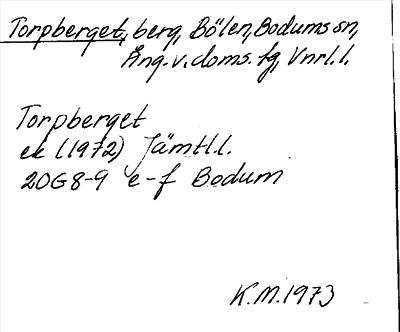 Torpberget, berg, Bölen, Bodums sn,
Ång. v. doms. fg, Vnrl. l.
Torpberget
ek (1972) Jämtl.l.
20G8-9 e-f Bodum
K.M. 1973